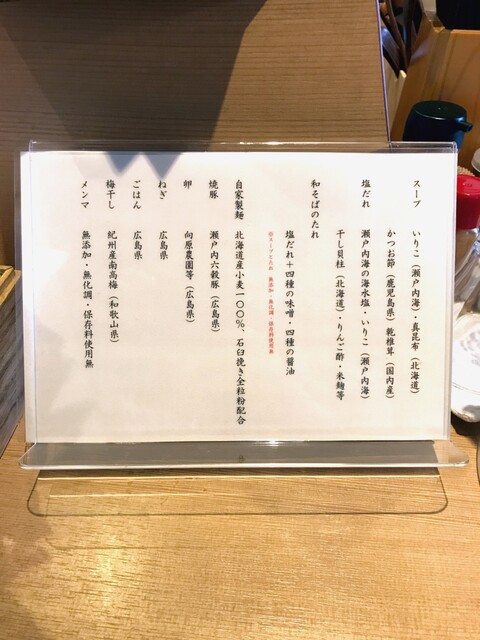 スープ　いりこ（瀬戸内海）・真昆布（北海道）
かつお節（鹿児島県）乾椎茸（国内産）
塩だれ　瀬戸内海の海水塩・いりこ（瀬戸内海）
干し貝柱（北海道）・りんご酢・米麹等
和そばのたれ
塩だれ＋四種の味噌・四種の醤油
※スープとたれ　無添加・無化調・保存料使用無
自家製麺　北海道産小麦一〇〇％、石臼挽き全粒粉配合
焼豚　瀬戸内六穀豚（広島県）
卵　向原農園等（広島県）
ねぎ　広島県
ごはん　広島県
梅干し　紀州産南高梅（和歌山県）
メンマ　無添加・無化調・保存料使用無